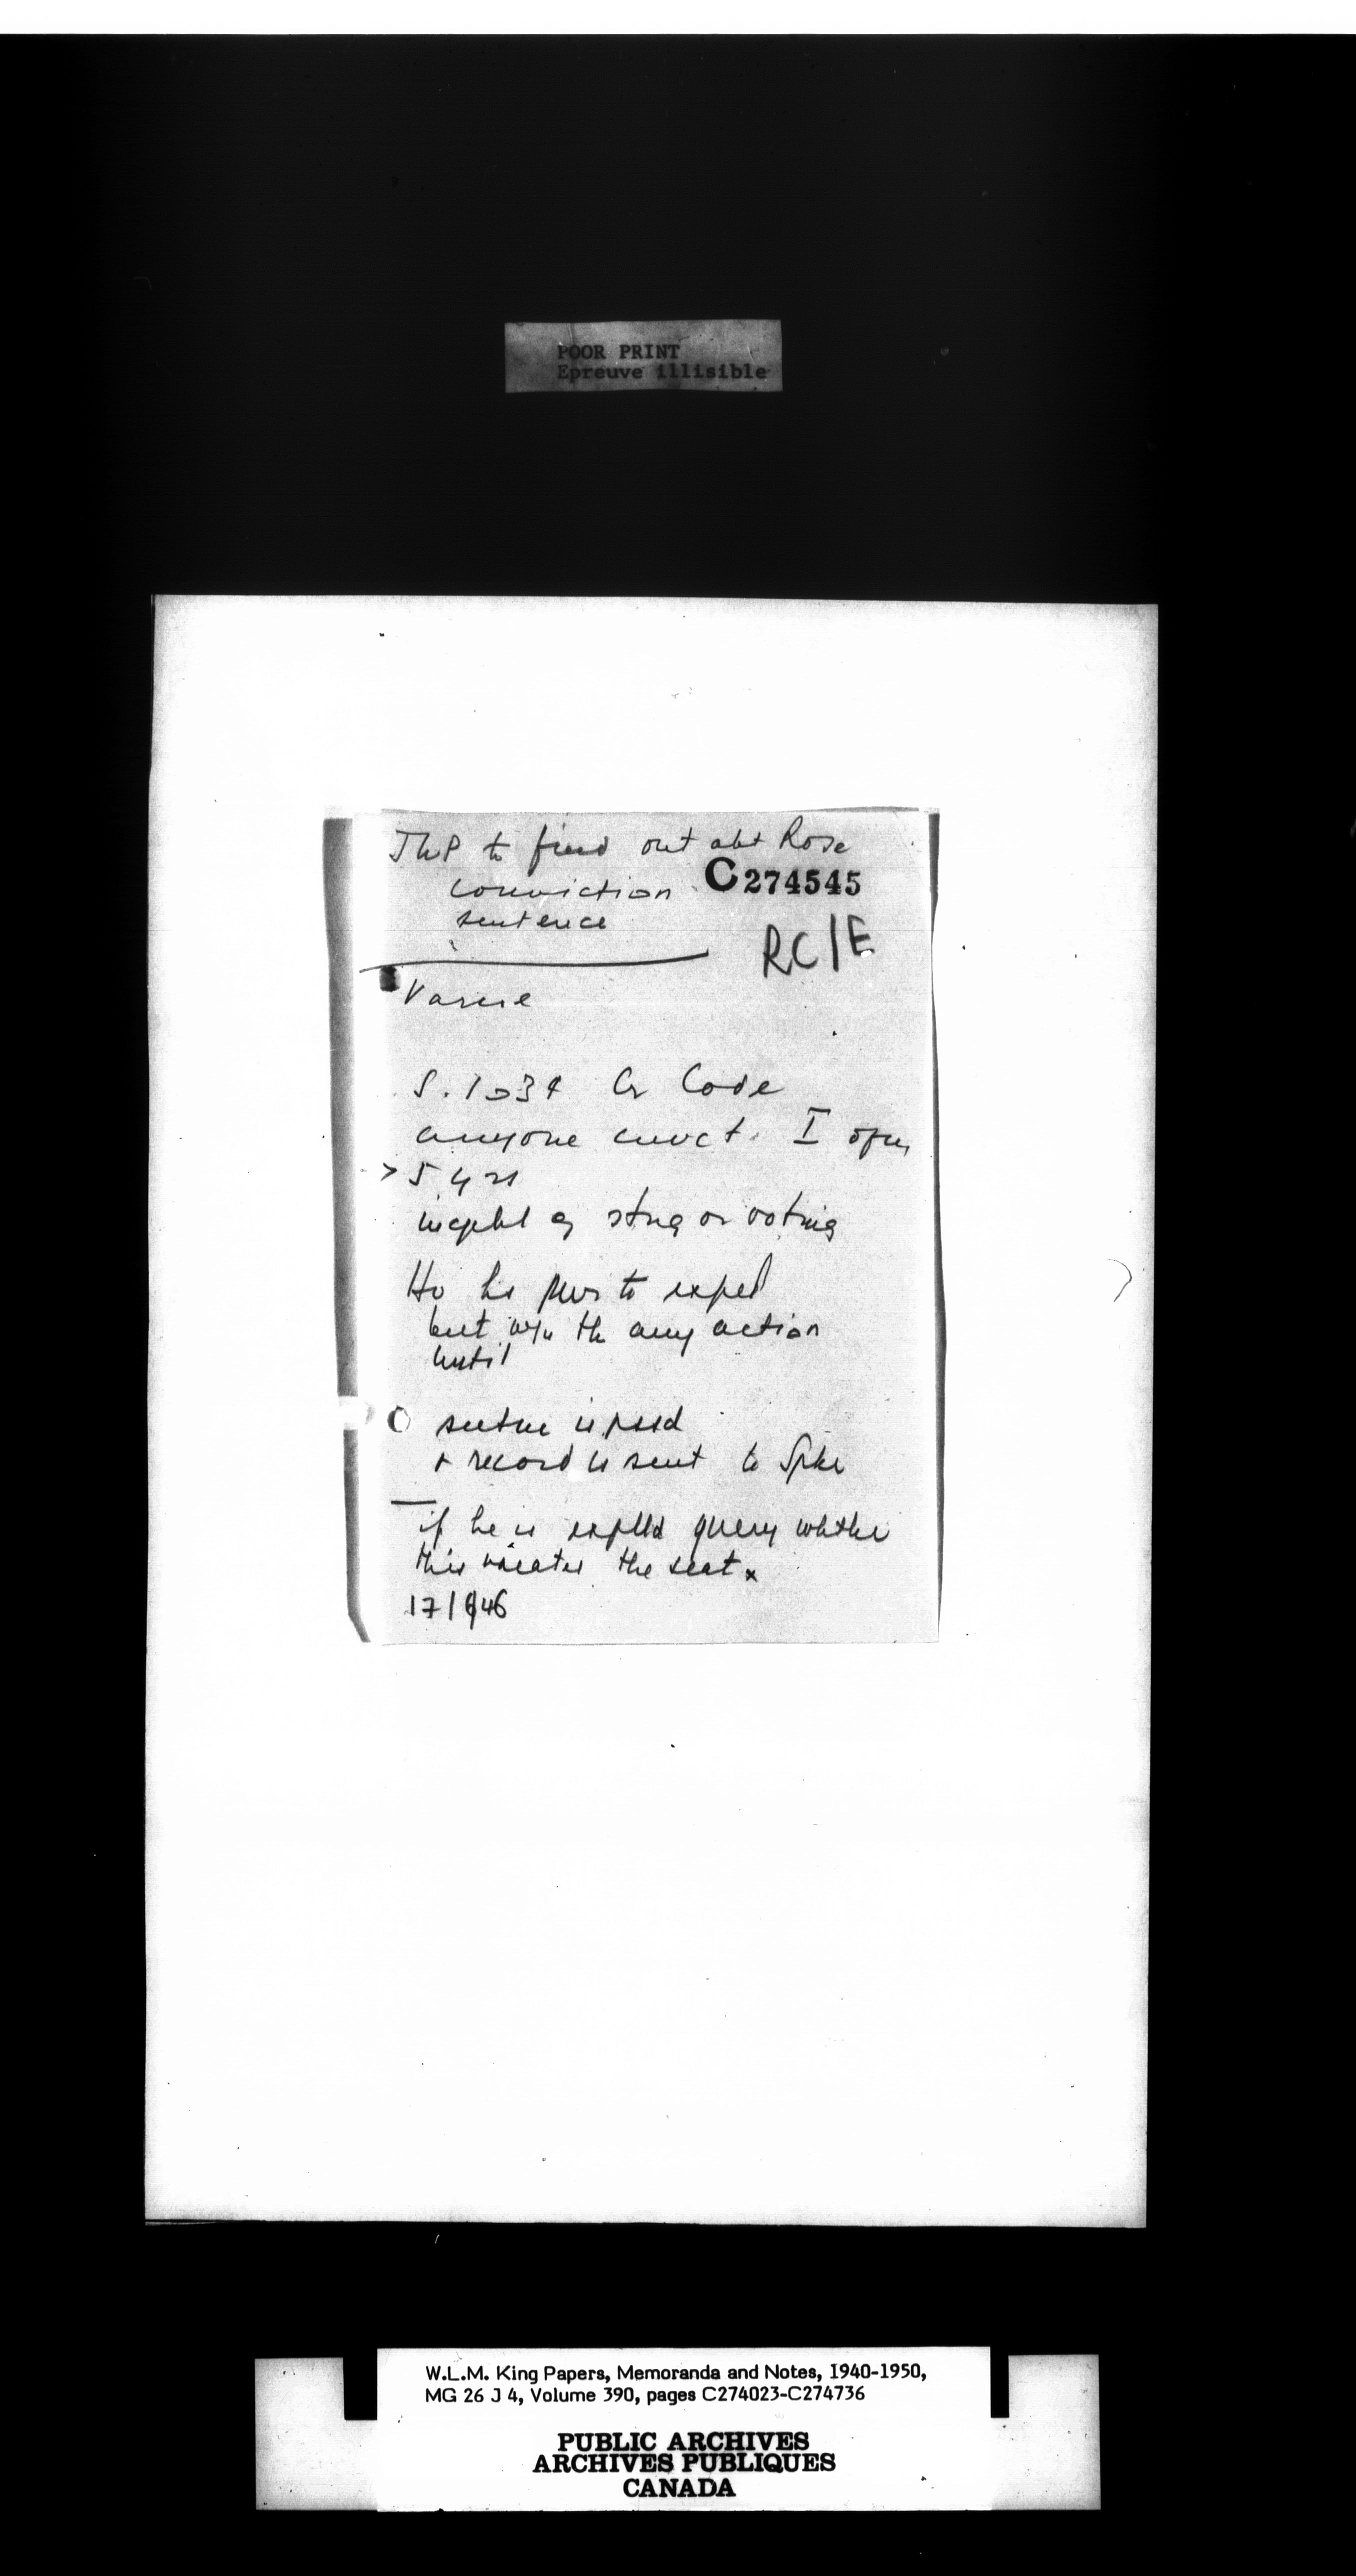 POOR PRINT
Epreuve illisible
JWP to find out abt Rose
conviction
C274545
sentence
RC/E
Varcoe
S. 1034 Cr Code
anyone
> 5 yrs
or voting
Ho has to expel
but any action
until
is passd
+ record is sent to Spkr
if he is explld query whether
this vacates the seat x
17/6/46
W.L.M. King Papers, Memoranda and Notes, 1940-1950,
MG 26 J 4, Volume 390, pages C274023-C274736
PUBLIC ARCHIVES
ARCHIVES PUBLIQUES
CANADA